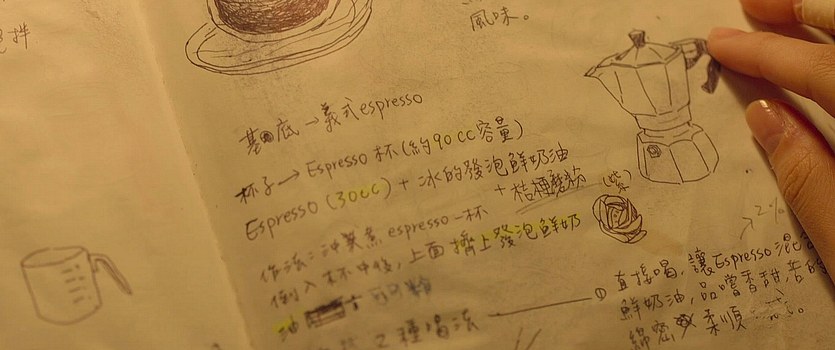 攪拌
風味。
基底→義式espresso
杯子→Espresso杯(約90cc容量)
Espresso(30cc)+冰的發泡鮮奶油
+桔種蘑粉
作法:沖煮 espresso一杯
倒入杯中後,上面擠上發泡鮮奶
油
2種喝法
①直接喝,讓Espresso混合
鮮奶油,品嚐香甜苦的
綿密 柔順